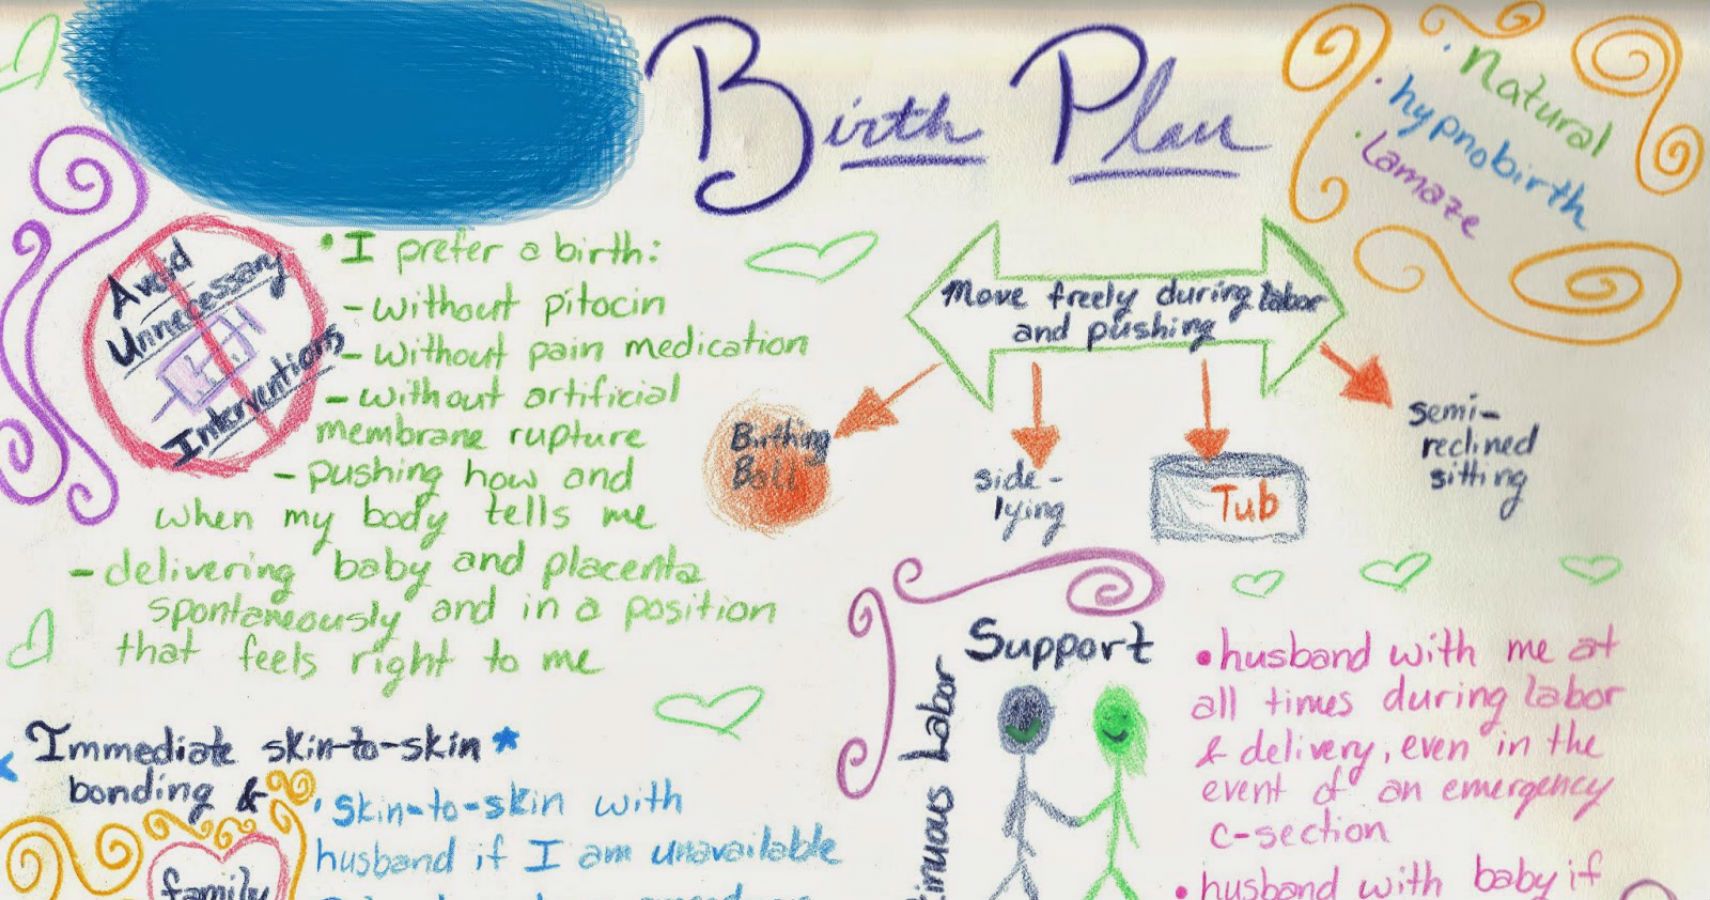 Birth Plan
· Natural
· hypnobirth
· Lamaze
Avoid
Unnecessary
Interventions
• I prefer a birth:
- without pitocin
- without pain medication
- without artificial
membrane rupture
- pushing how and
when my body tells me
- delivering baby and placenta
spontaneously and in a position
that feels right to me
Move freely during labor
and pushing
Birthing
Ball
side-
lying
Tub
semi-
reclined
sitting
Immediate skin-to-skin
bonding &
family
· Skin-to-skin with
husband if I am unavailable
Support
Labor
• husband with me at
all times during labor
& delivery, even in the
event of an emergency
c-section
• husband with baby if